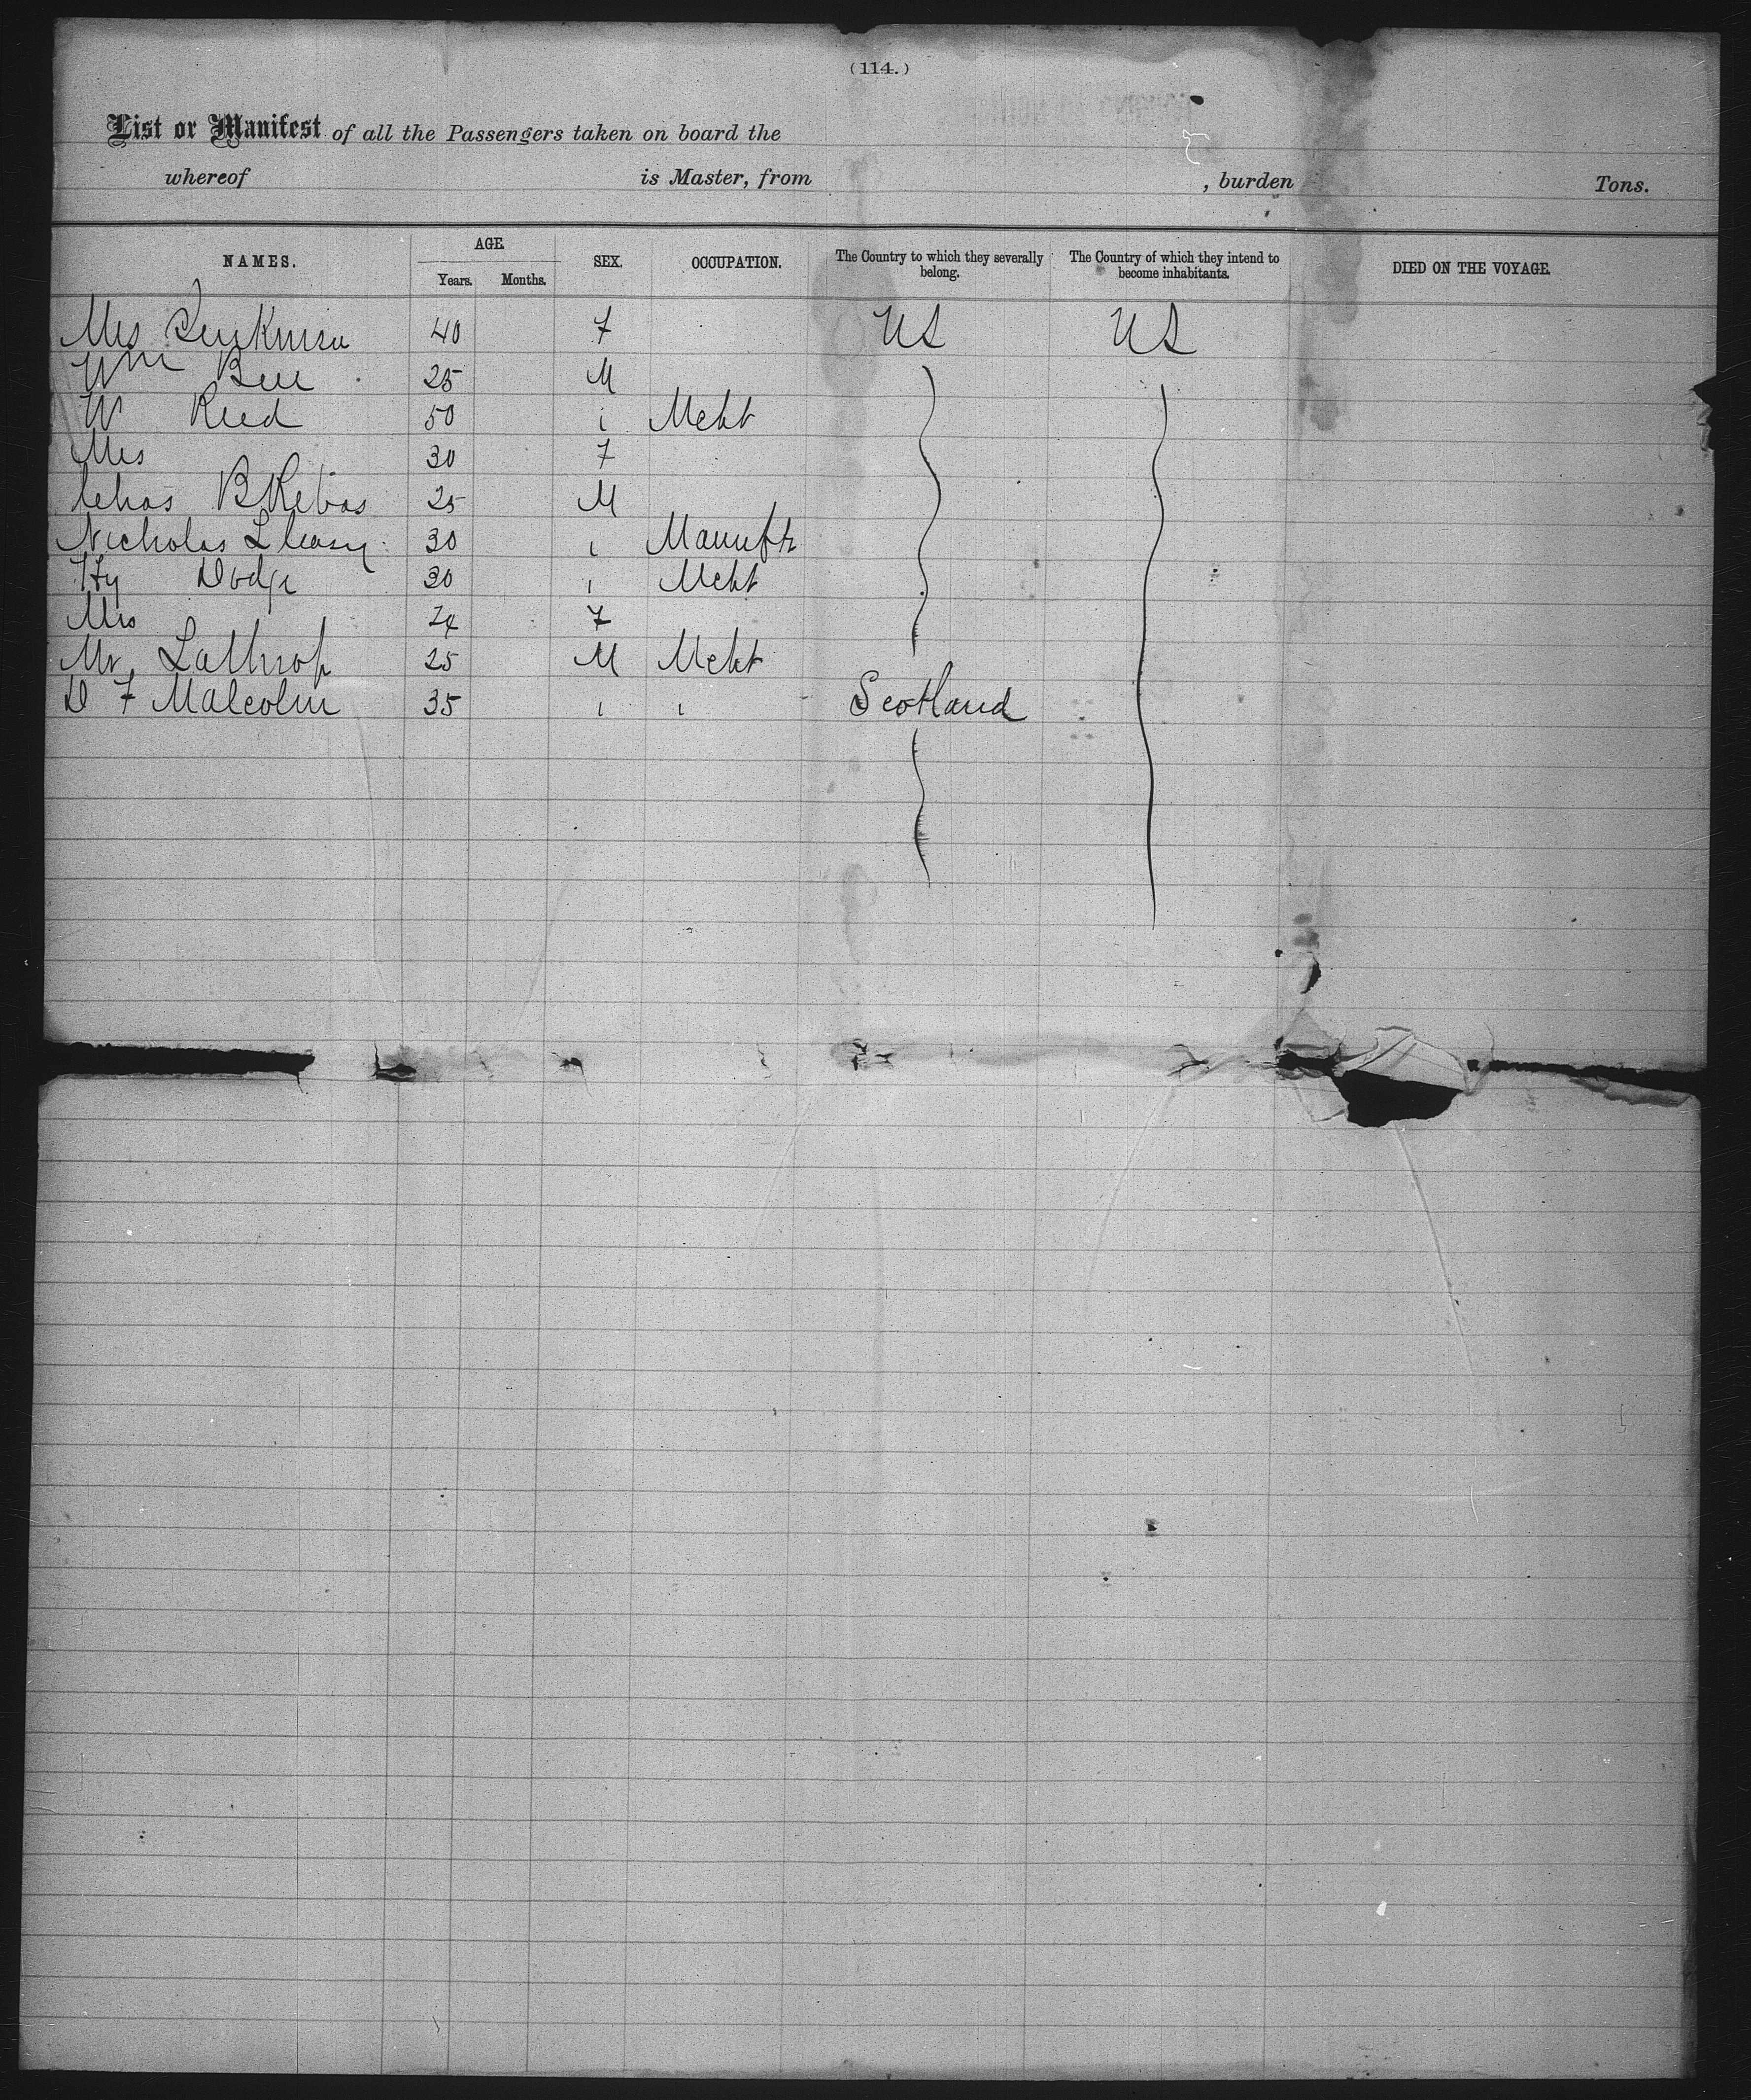 (114.)
List or Manifest of all the Passengers taken on board the
whereof is Master, from , burden Tons.
NAMES. AGE. Years. Months. SEX. OCCUPATION. The Country to which they severally belong. The Country of which they intend to become inhabitants. DIED ON THE VOYAGE.
Mrs 40 F US US
Wm Bell 25 M
W Reed 50 " Mcht
Mrs 30 F
Chas B 25 M
Nicholas 30 " Manuftr
Hy Dodge 30 " Mcht
Mrs 24 F
Mr Lathrop 25 M Mcht
D F Malcolm 35 " " Scotland